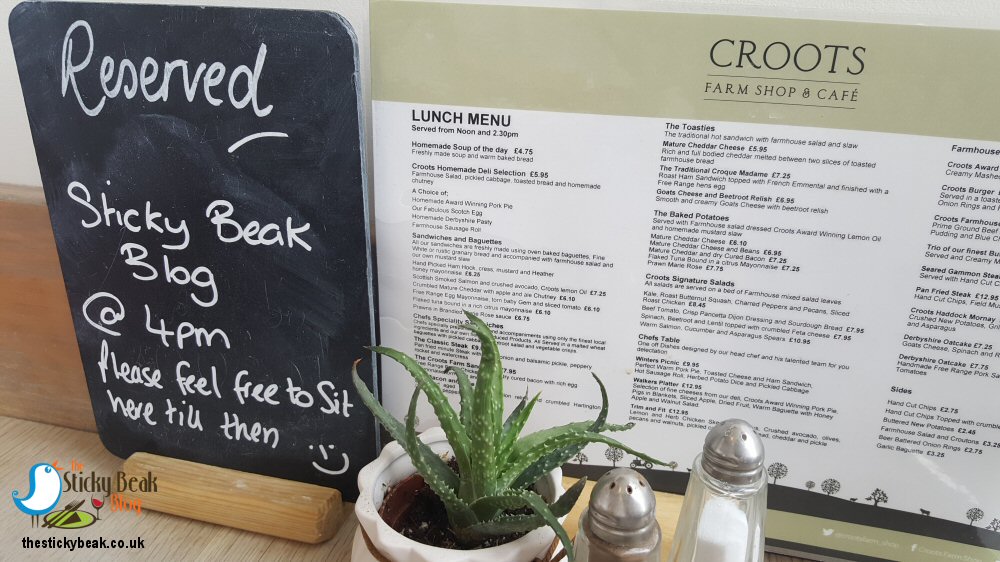 Reserved
Sticky Beak
Blog
@ 4pm
Please feel free to sit
here till then
The
Sticky Beak
Blog
thestickybeak.co.uk
CROOTS
FARM SHOP & CAFÉ
LUNCH MENU
Served from Noon and 2.30pm
Homemade Soup of the day £4.75
Freshly made soup and warm baked bread
Croots Homemade Deli Selection £5.95
Farmhouse Salad, pickled cabbage, toasted bread and homemade
chutney
A Choice of;
Homemade Award Winning Pork Pie
Our Fabulous Scotch Egg
Homemade Derbyshire Pasty
Farmhouse Sausage Roll
Sandwiches and Baguettes
All our sandwiches are freshly made using oven baked baguettes, Fine
White or rustic granary bread and accompanied with farmhouse salad and
our own mustard slaw
Hand Picked Ham Hock, cress, mustard and Heather
honey mayonnaise. £6.25
Scottish Smoked Salmon and crushed avocado, Croots lemon Oil £7.25
Crumbled Mature Cheddar with apple and ale Chutney £6.10
Free Range Egg Mayonnaise, torn baby Gem and sliced tomato £6.10
Flaked tuna bound in a rich citrus mayonnaise £6.10
Prawns in Brandied Rose sauce £6.75
Chefs Speciality Sandwiches
The Classic Steak
The Croots Farm
The Toasties
The traditional hot sandwich with farmhouse salad and slaw
Mature Cheddar Cheese £5.95
Rich and full bodied cheddar melted between two slices of toasted
farmhouse bread
The Traditional Croque Madame £7.25
Roast Ham Sandwich topped with French Emmental and finished with a
Free Range hens egg
Goats Cheese and Beetroot Relish £6.95
Smooth and creamy Goats Cheese with beetroot relish
The Baked Potatoes
Served with Farmhouse salad dressed Croots Award Winning Lemon Oil
and homemade mustard slaw
Mature Cheddar Cheese £6.10
Mature Cheddar Cheese and Beans £6.95
Mature Cheddar and dry Cured Bacon £7.25
Flaked Tuna Bound in a citrus Mayonnaise £7.25
Prawn Marie Rose £7.75
Croots Signature Salads
All salads are served on a bed of Farmhouse mixed salad leaves
Kale, Roast Butternut Squash, Charred Peppers and Pecans, Sliced
Roast Chicken £8.45
Beef Tomato, Crisp Pancetta Dijon Dressing and Sourdough Bread £7.95
Spinach, Beetroot and Lentil topped with crumbled Feta cheese £7.95
Warm Salmon, Cucumber and Asparagus Spears £10.95
Chefs Table
One off Dishes designed by our head chef and his talented team for you
delectation
Winters Picnic £9.95
Perfect Warm Pork Pie, Toasted Cheese and Ham Sandwich,
Hot Sausage Roll, Herbed Potato Dice and Pickled Cabbage
Walkers Platter £12.95
Selection of fine cheeses from our deli, Croots Award Winning Pork Pie,
Pigs in Blankets, Sliced Apple, Dried Fruit, Warm Baguette with Honey
Apple and Walnut Salad
Trim and Fit £12.95
Lemon and Herb Chicken
Crushed avocado, olives,
pecans and walnuts, pickled
cheddar and pickle
Farmhouse
Croots Award
Creamy Mashed
Croots Burger
Served in a toasted
Onion Rings and
Croots Farmhouse
Prime Ground Beef
Pudding and Blue
Trio of our finest
Served and Creamy
Seared Gammon Steak
Served with Hand Cut
Pan Fried Steak £12.95
Hand Cut Chips, Field
Croots Haddock Mornay
Crushed New Potatoes,
and Asparagus
Derbyshire Oatcake £7.25
Goats Cheese, Spinach and
Derbyshire Oatcake £7.75
Handmade Free Range Pork
Tomatoes
Sides
Hand Cut Chips £2.75
Hand Cut Chips Topped with
Buttered New Potatoes £2.45
Farmhouse Salad and Croutons £3.25
Beer Battered Onion Rings £2.75
Garlic Baguette £3.25
CROOTS
FARM SHOP & CAFÉ
@crootsfarm_shop